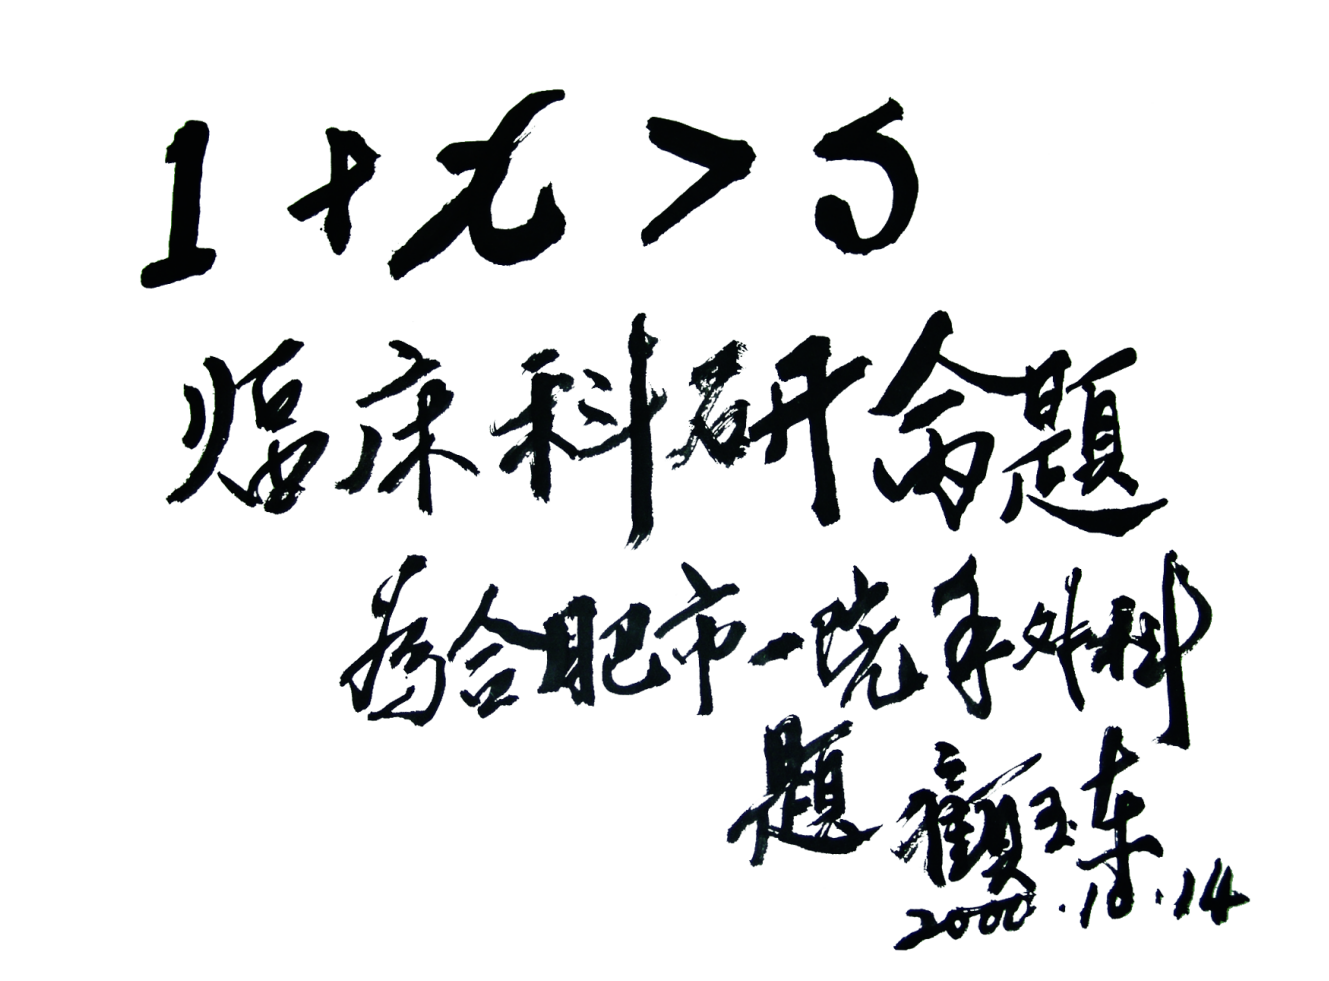 1+x>5
临床科研命题
为合肥市一院手外科
题 顾玉东
2000.10.14